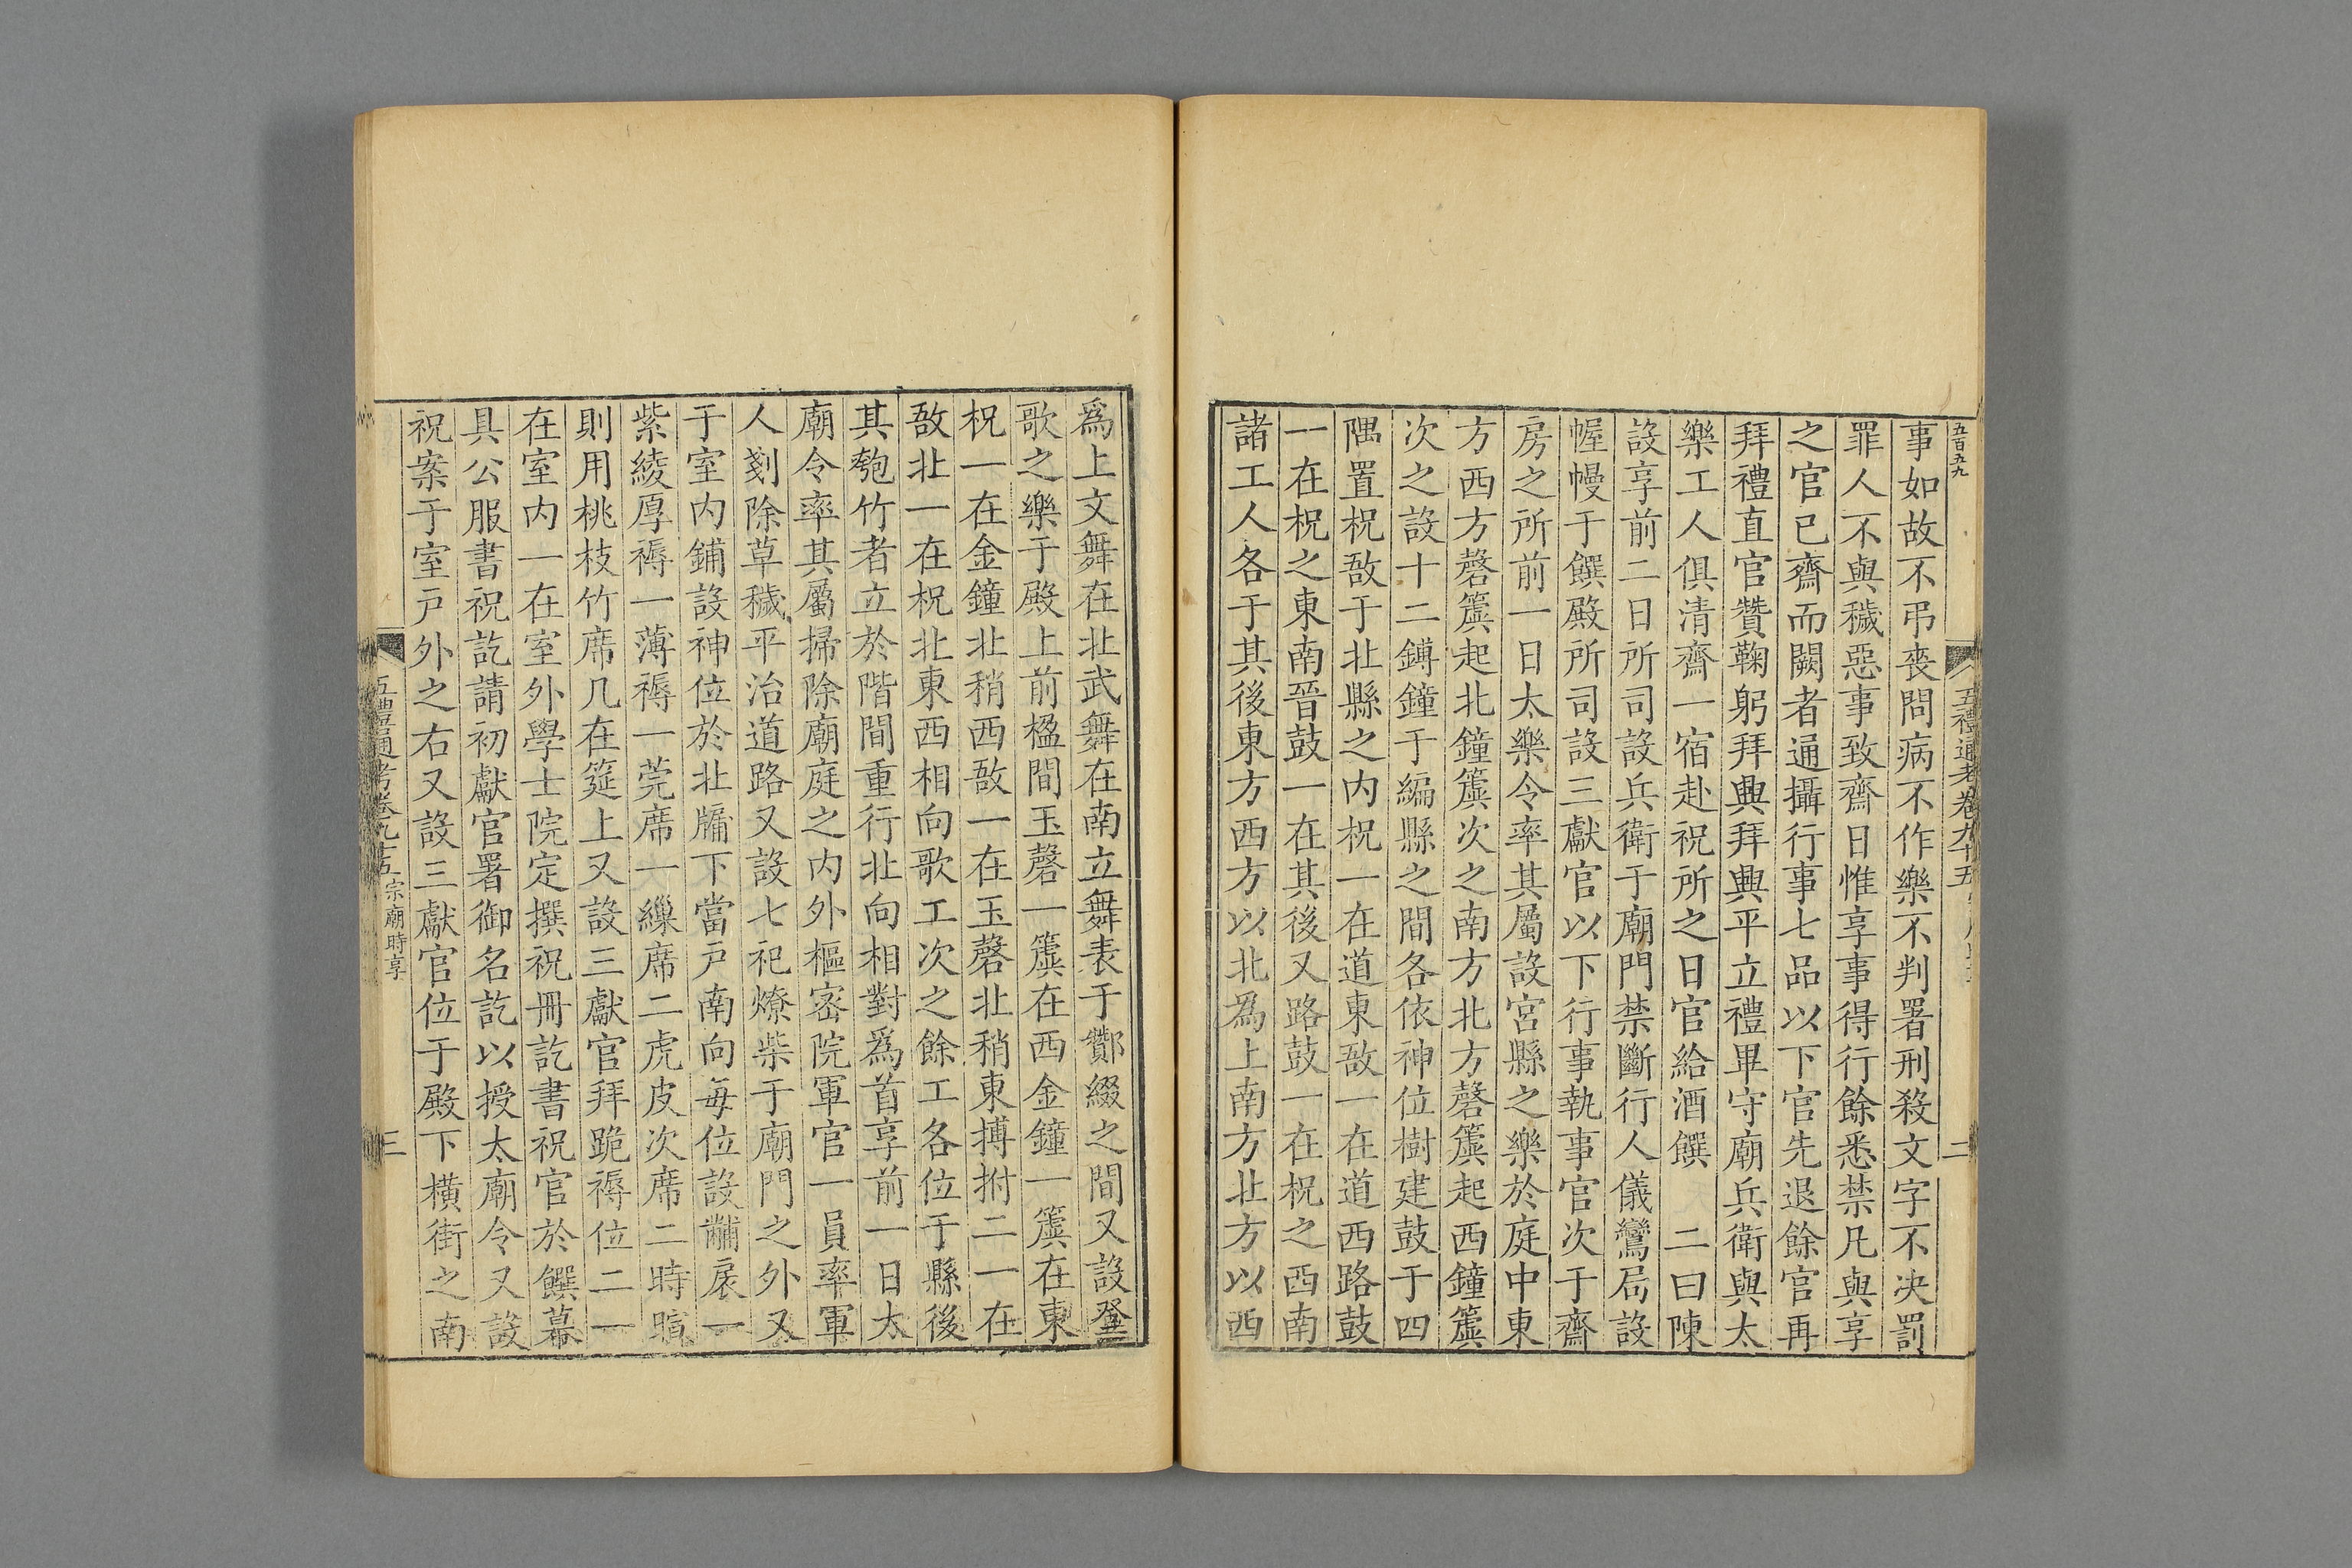 五百五九
五禮通考卷九十五
二
事如故不弔喪問病不作樂不判署刑殺文字不决罰
罪人不與穢惡事致齋日惟享事得行餘悉禁凡與享
之官已齋而闕者通攝行事七品以下官先退餘官再
拜禮直官贊鞠躬拜興拜興平立禮畢守廟兵衛與太
樂工人俱清齋一宿赴祝所之日官給酒饌 二曰陳
設享前二日所司設兵衛于廟門禁斷行人儀鸞局設
幄幔于饌殿所司設三獻官以下行事執事官次于齋
房之所前一日太樂令率其屬設宮縣之樂於庭中東
方西方磬簴起北鐘簴次之南方北方磬簴起西鐘簴
次之設十二鎛鐘于編縣之間各依神位樹建鼓于四
隅置柷敔于北縣之内柷一在道東敔一在道西路鼓
一在柷之東南晉鼓一在其後又路鼓一在柷之西南
諸工人各于其後東方西方以北爲上南方北方以西
爲上文舞在北武舞在南立舞表于酇綴之間又設登
歌之樂于殿上前楹間玉磬一簴在西金鐘一簴在東
柷一在金鐘北稍西敔一在玉磬北稍東搏拊二一在
敔北一在柷北東西相向歌工次之餘工各位于縣後
其匏竹者立於階間重行北向相對爲首享前一日太
廟令率其屬掃除廟庭之内外樞密院軍官一員率軍
人剗除草穢平治道路又設七祀燎柴于廟門之外又
于室内鋪設神位於北牖下當戸南向每位設黼扆一
紫綾厚褥一薄褥一莞席一繅席二虎皮次席二時暄
則用桃枝竹席几在筵上又設三獻官拜跪褥位二一
在室内一在室外學士院定撰祝冊訖書祝官於饌幕
具公服書祝訖請初獻官署御名訖以授太廟令又設
祝案于室戸外之右又設三獻官位于殿下橫街之南
五禮通考卷九十五 宗廟時享
三